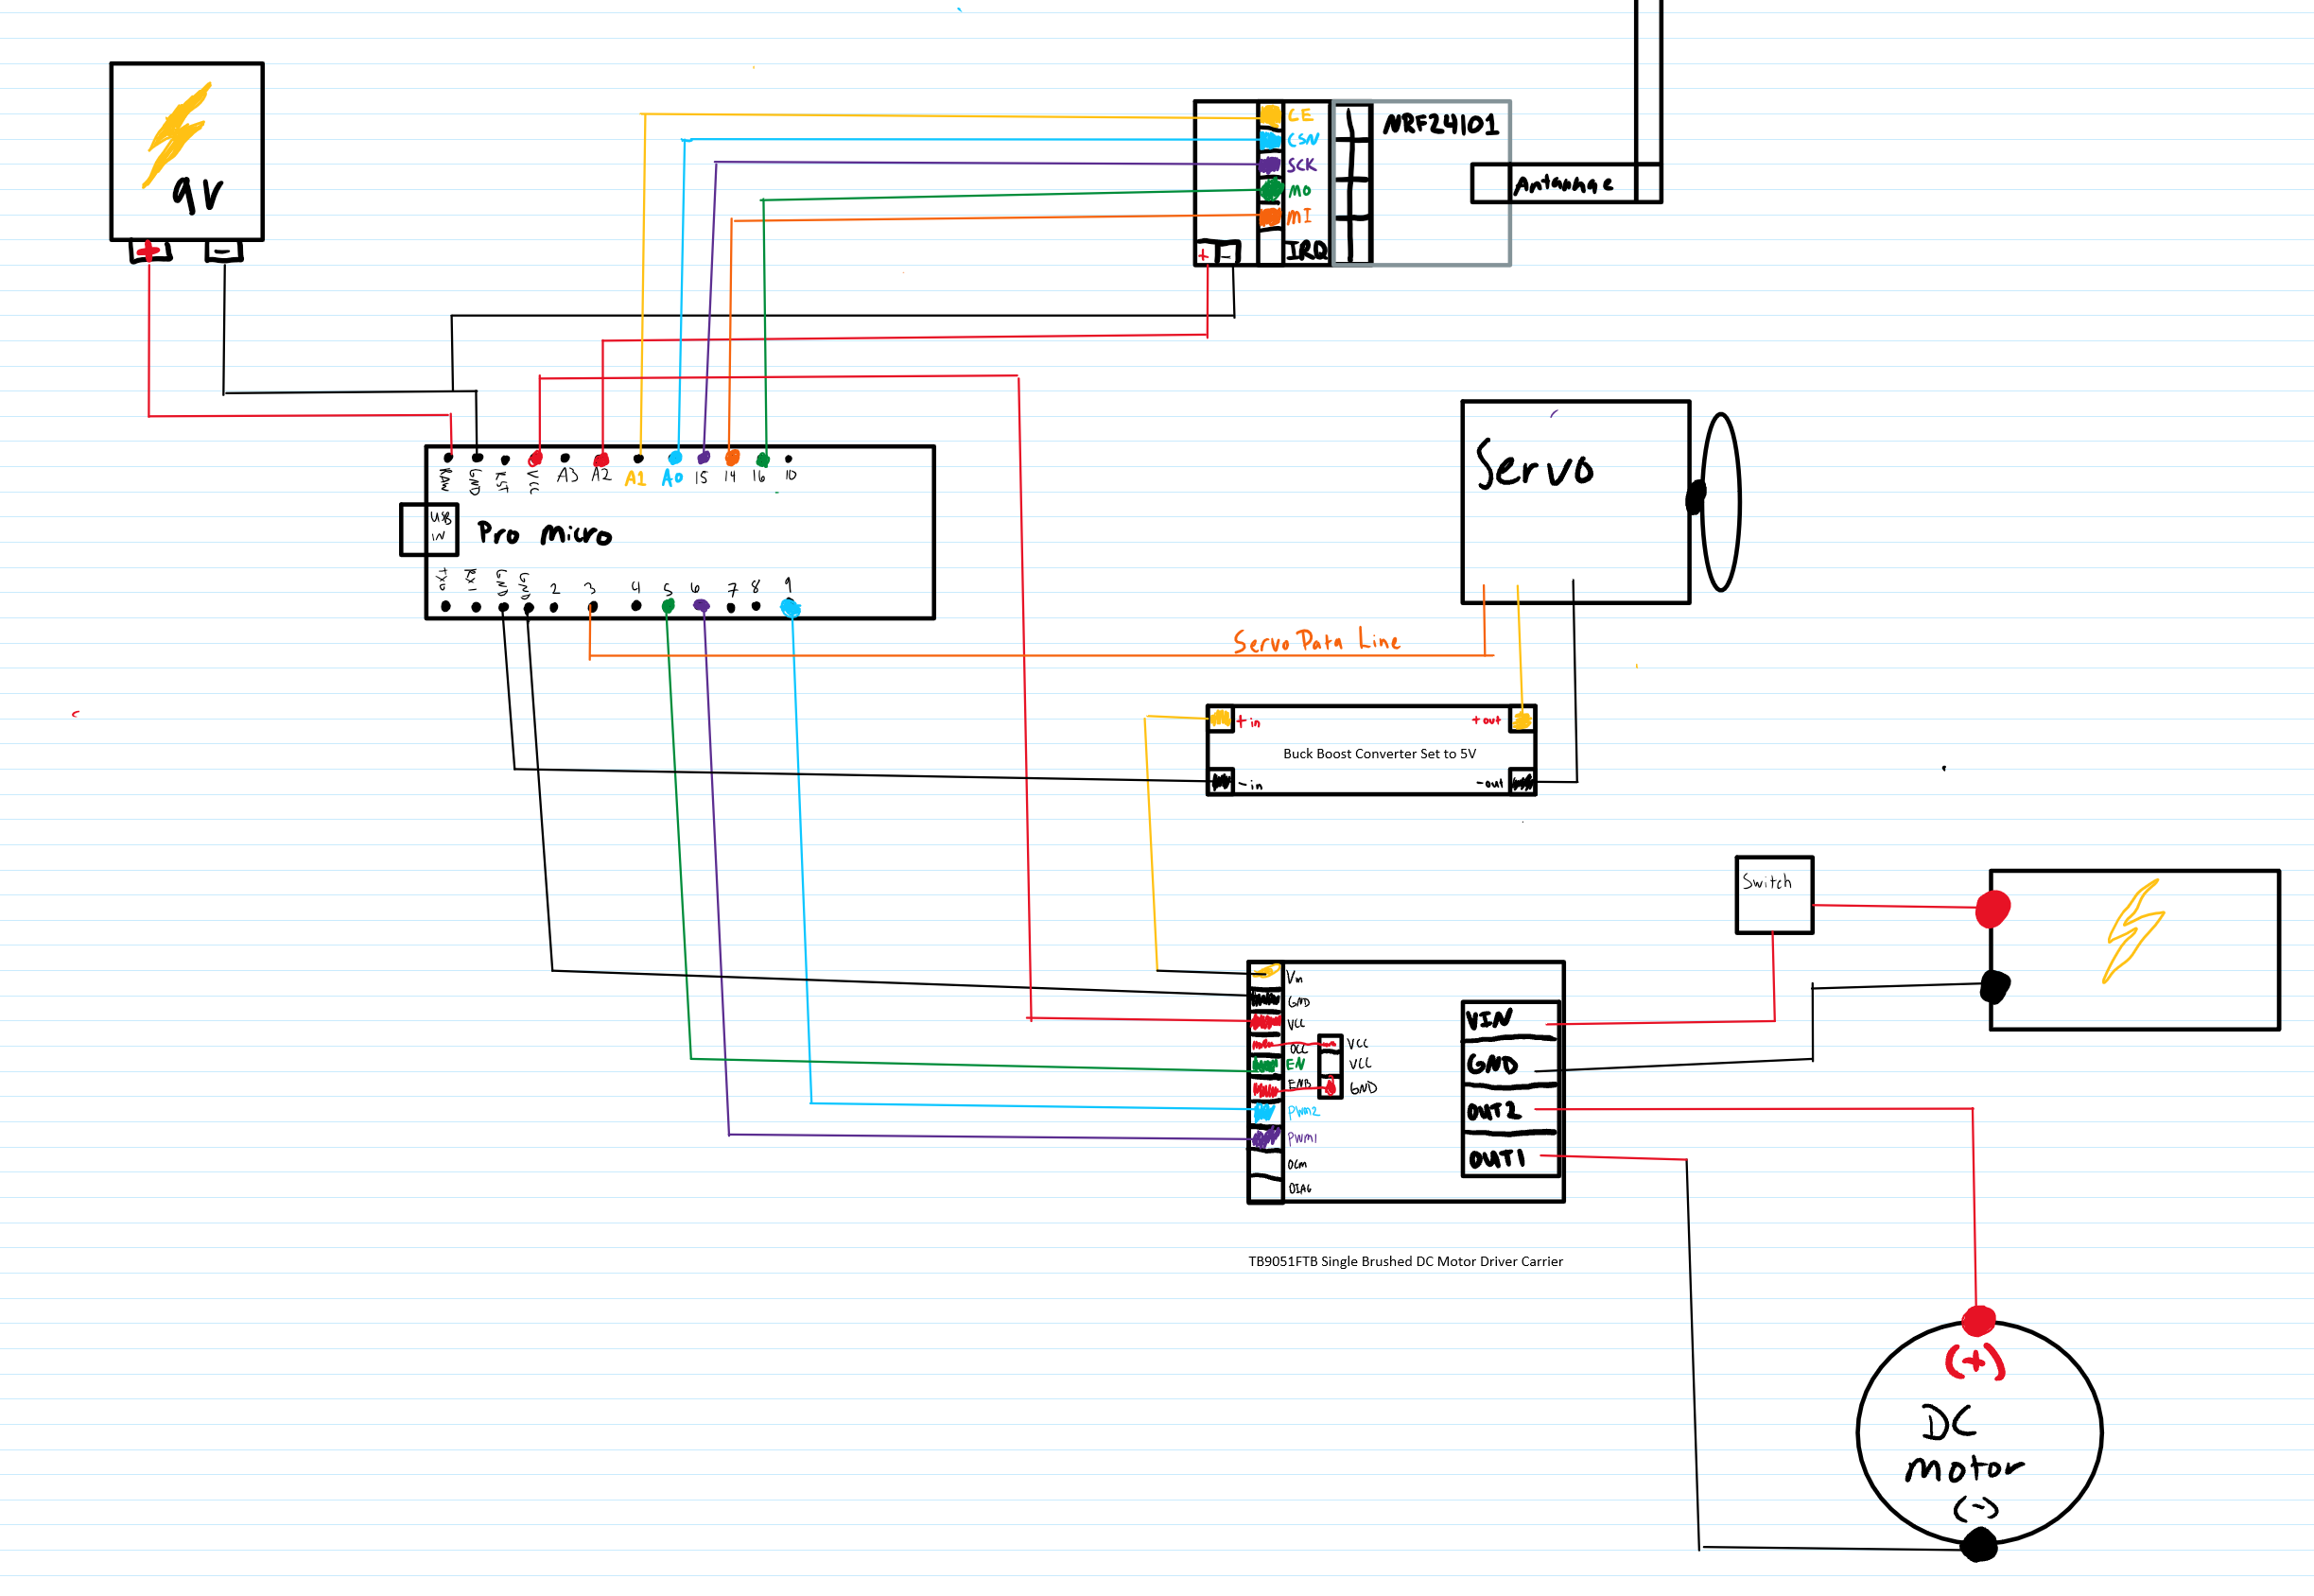 9V
+
-
CE
CSN
SCK
MO
MI
IRQ
+
-
NRF24l01
Antannae
RAW
GND
RST
VCC
A3
A2
A1
A0
15
14
16
10
USB
IN
Pro Micro
TX0
RX1
GND
GND
2
3
4
5
6
7
8
9
Servo
Servo Data Line
+in
+out
Buck Boost Converter Set to 5V
-in
-out
Switch
Vin
GND
VCC
OCC
EN
ENB
PWM2
PWM1
OCM
DIAG
VCC
VCC
GND
VIN
GND
OUT2
OUT1
TB9051FTB Single Brushed DC Motor Driver Carrier
(+)
DC
motor
(-)